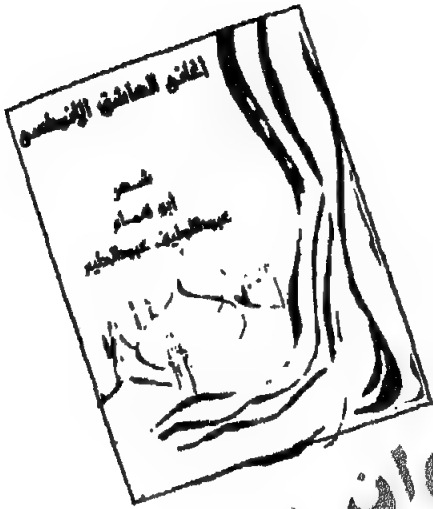 أغاني العاشق الأندلسي
شعر
أبو همام
عبداللطيف عبدالحليم